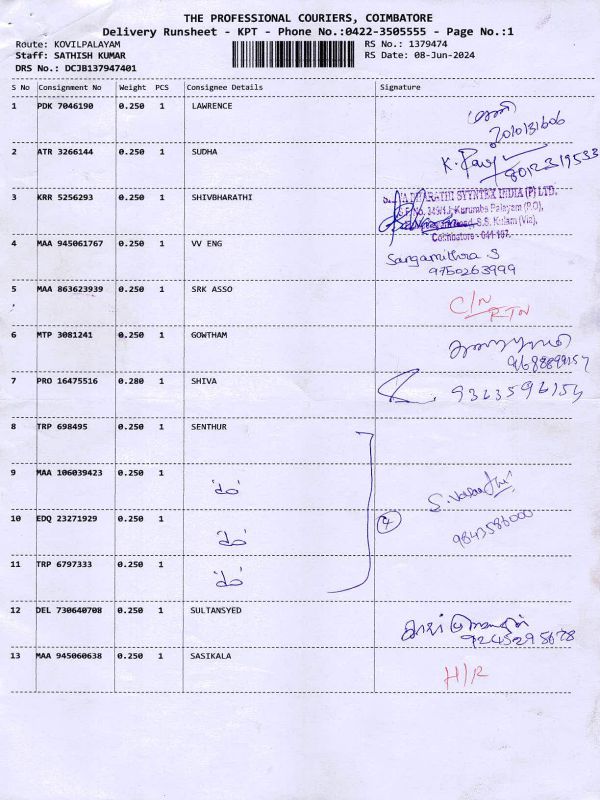 THE PROFESSIONAL COURIERS, COIMBATORE
Delivery Runsheet - KPT - Phone No.:0422-3505555 - Page No.:1
Route: KOVILPALAYAM
Staff: SATHISH KUMAR
DRS No.: DCJB137947401
RS No.: 1379474
RS Date: 08-Jun-2024
S No Consignment No Weight PCS Consignee Details Signature
1 PDK 7046190 0.250 1 LAWRENCE
2 ATR 3266144 0.250 1 SUDHA
K.
3 KRR 5256293 0.250 1 SHIVBHARATHI
BHARATHI SYYNTEX INDIA (P) LTD.
Kurumba Palayam (P.O),
S.S. Kulam (Via),
Coimbatore - 641 107.
4 MAA 945061767 0.250 1 VV ENG
Sangamithra S
9750263999
5 MAA 863623939 0.250 1 SRK ASSO
C/N
RTN
6 MTP 3081241 0.250 1 GOWTHAM
7 PRO 16475516 0.280 1 SHIVA
9363596154
8 TRP 698495 0.250 1 SENTHUR
9 MAA 106039423 0.250 1 "do"
S. Vasanthi
10 EDQ 23271929 0.250 1 "do" 4
9843586000
11 TRP 6797333 0.250 1 "do"
12 DEL 730640708 0.250 1 SULTANSYED
9245295678
13 MAA 945060638 0.250 1 SASIKALA
H/R